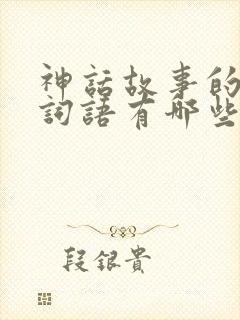 神話故事的
詞語有哪些
段銀貴